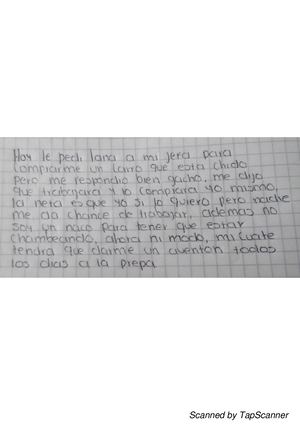 Hoy le pedi lana a mi jefa para
comprarme un carro que esta chido
pero me respondio bien gacho, me dijo
que trabajara y lo comprara yo mismo,
la neta es que yo si lo quiero pero nadie
me da chance de trabajar, ademas no
soy un naco para tener que estar
chambeando, ahora ni modo, mi cuate
tendra que darme un aventon todos
los dias a la prepa
Scanned by TapScanner